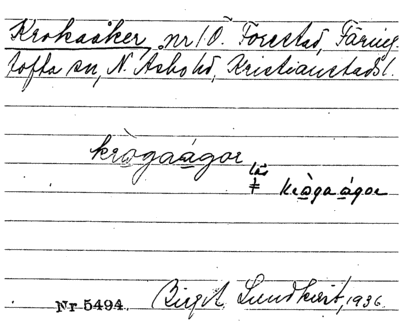 Krokaåker, nr 10. Forestad, Färing-
tofta sn, N. Åsbo hd, Kristianstads l.
krògaágor
läs
‡ kròga ágor
Nr 5494. Birgit Lundkvist, 1936.